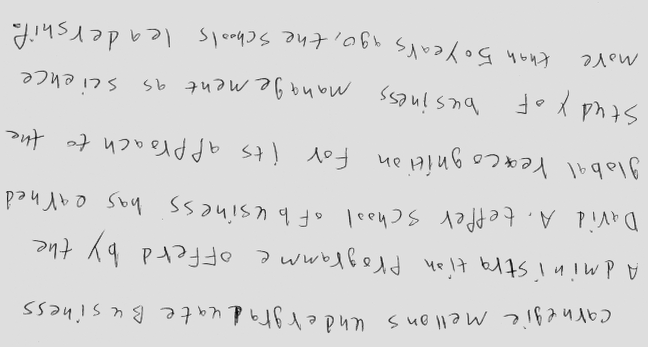 carnegie mellons undergraduate Business
Administration programme offerd by the
David A. tepper school of business has earned
global reacognition for its approach to the
study of business management as science
more than 50 years ago, the schools leadership